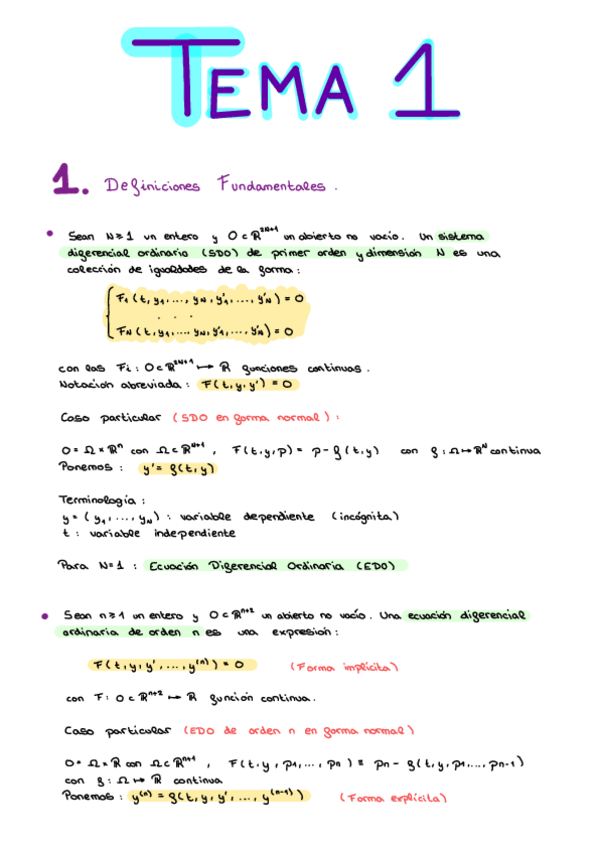 TEMA 1
1. Definiciones Fundamentales.
• Sean N≥1 un entero y O⊂ℝ²ᴺ⁺¹ un abierto no vacío. Un sistema
diferencial ordinario (SDO) de primer orden y dimensión N es una
colección de igualdades de la forma:
F₁(t, y₁, ..., y_N, y'₁, ..., y'_N) = 0
. . .
F_N(t, y₁, ..., y_N, y'₁, ..., y'_N) = 0
con las Fᵢ: O⊂ℝ²ᴺ⁺¹ ↦ ℝ funciones continuas.
Notación abreviada: F(t, y, y') = 0
Caso particular (SDO en forma normal):
O = Ω × ℝⁿ con Ω⊂ℝᴺ⁺¹, F(t, y, p) = p - f(t, y) con f: Ω ↦ ℝᴺ continua
Ponemos: y' = f(t, y)
Terminología:
y = (y₁, ..., y_N): variable dependiente (incógnita)
t: variable independiente
Para N=1: Ecuación Diferencial Ordinaria (EDO)
• Sean n≥1 un entero y O⊂ℝⁿ⁺² un abierto no vacío. Una ecuación diferencial
ordinaria de orden n es una expresión:
F(t, y, y', ..., y⁽ⁿ⁾) = 0 (Forma implícita)
con F: O⊂ℝⁿ⁺² ↦ ℝ función continua.
Caso particular (EDO de orden n en forma normal)
O = Ω × ℝ con Ω⊂ℝⁿ⁺¹, F(t, y, p₁, ..., pₙ) ≡ pₙ - f(t, y, p₁, ..., pₙ₋₁)
con f: Ω ↦ ℝ continua
Ponemos: y⁽ⁿ⁾ = f(t, y, y', ..., y⁽ⁿ⁻¹⁾) (Forma explícita)